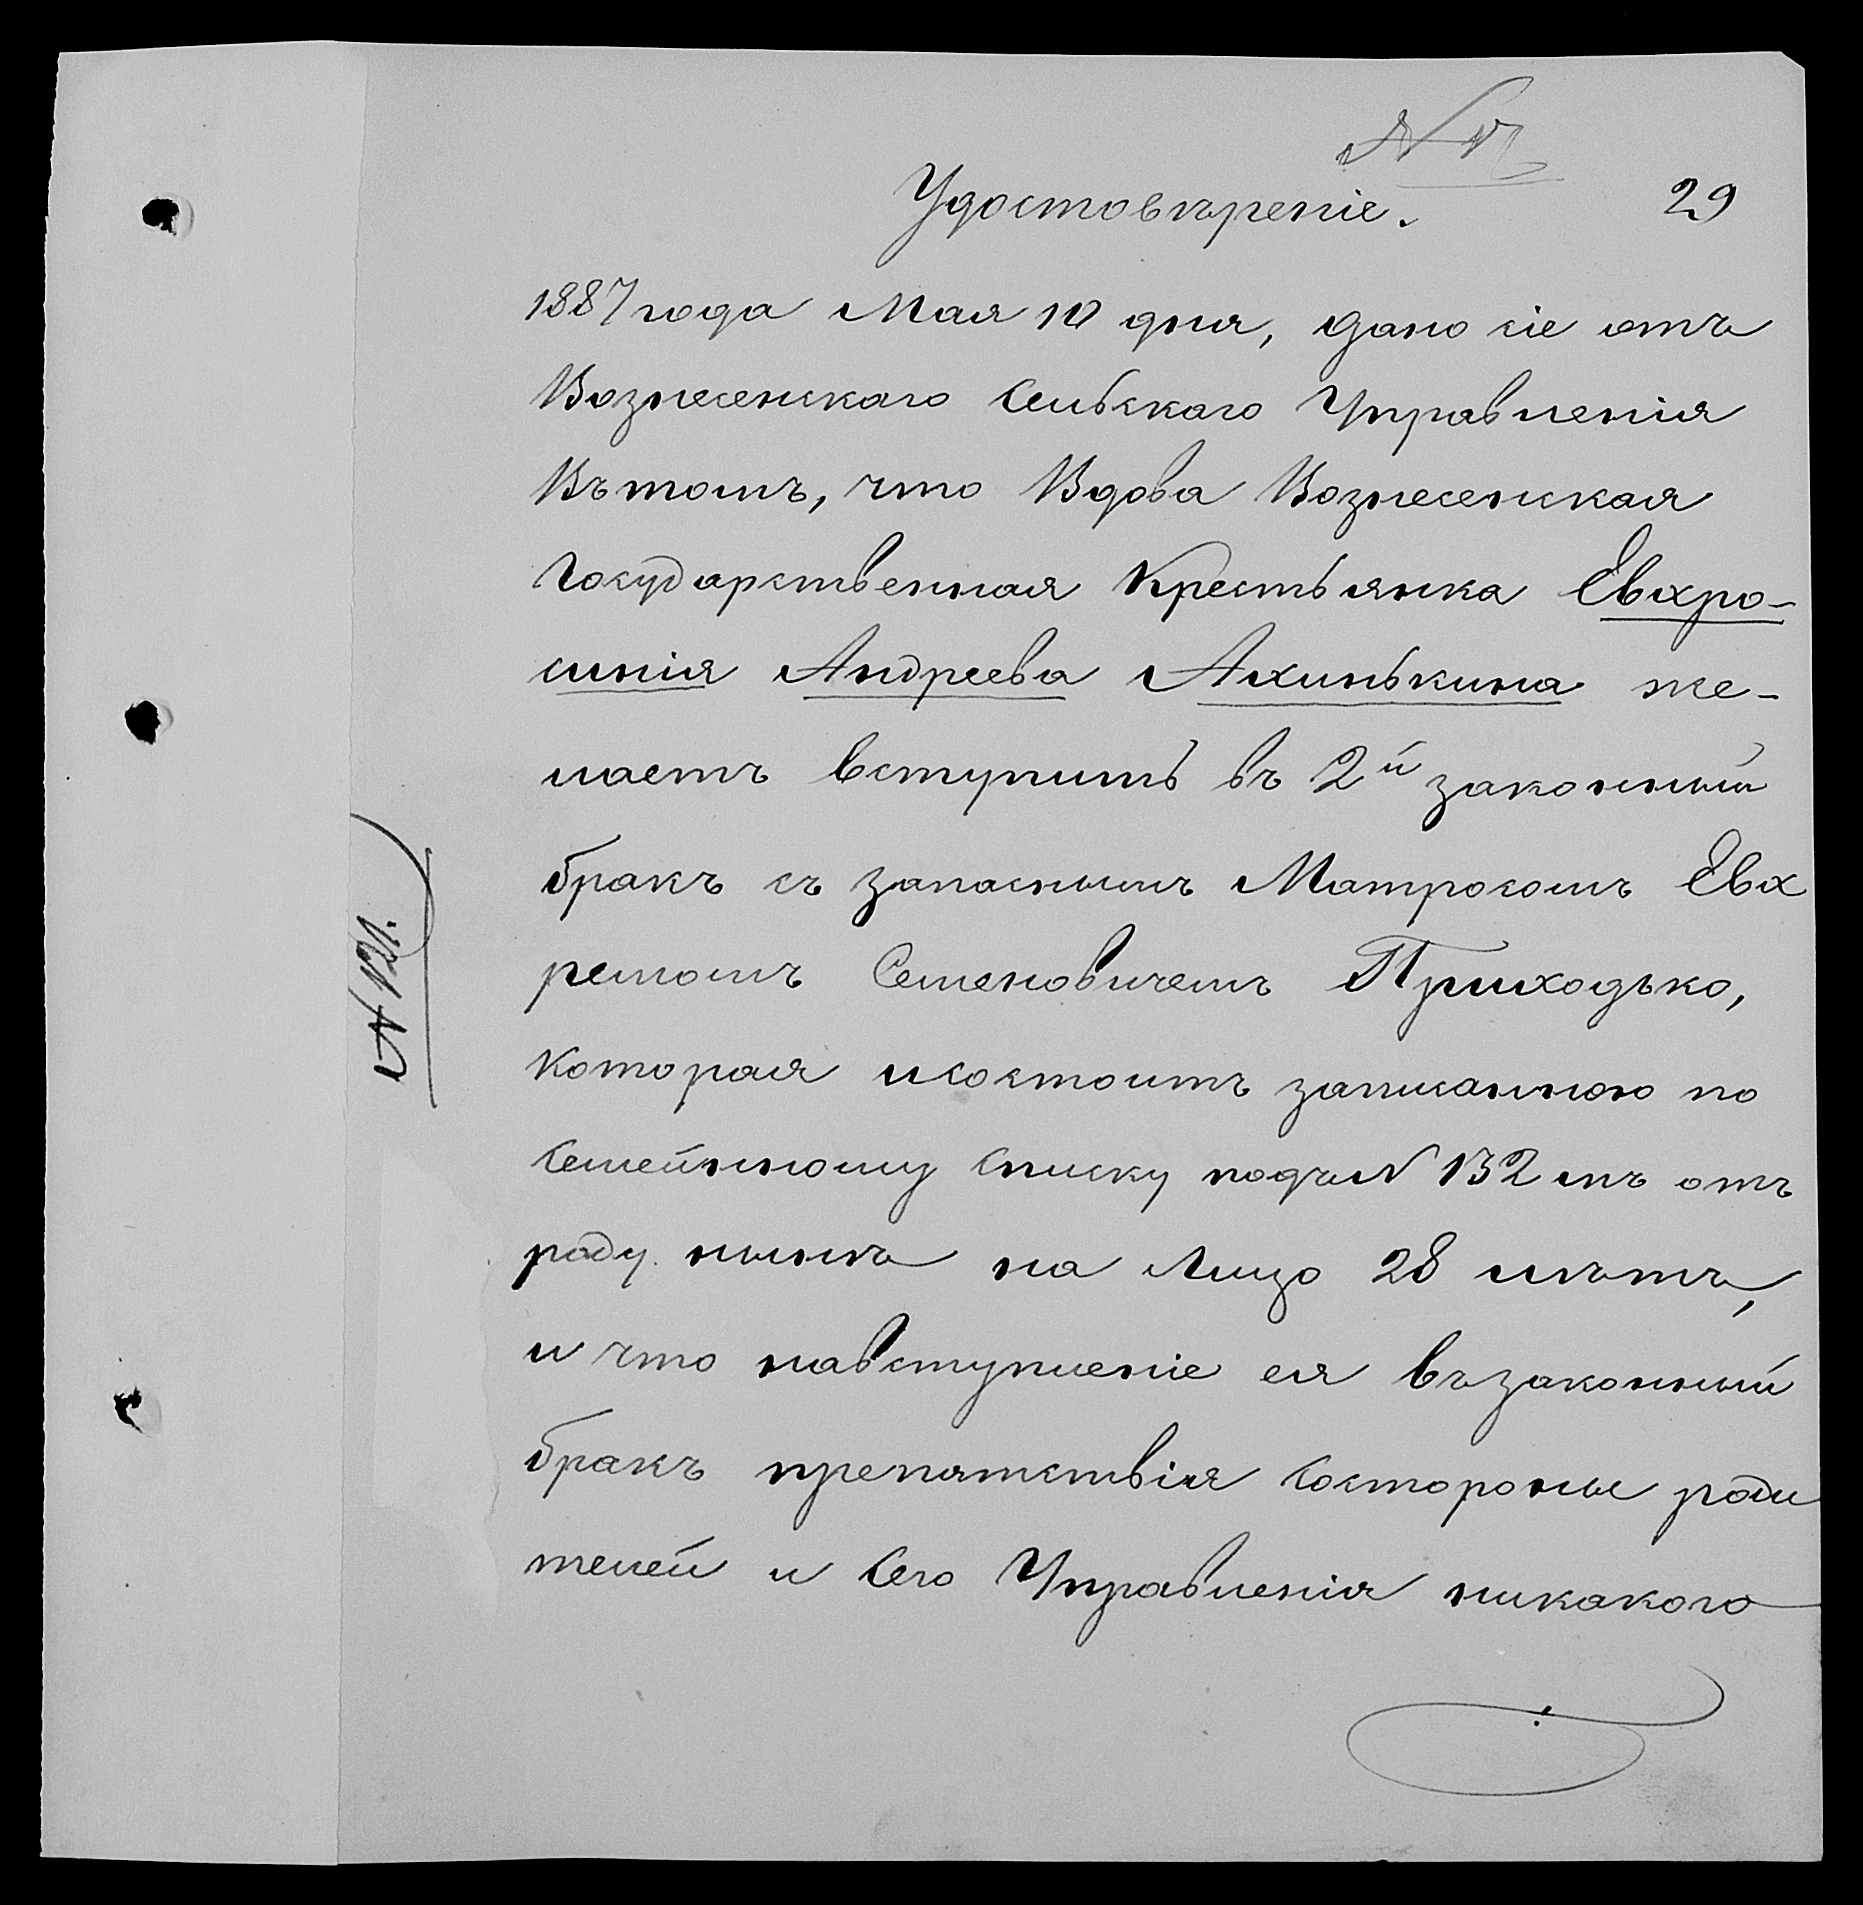 N 17
29
Удостовѣреніе.
1887 года Мая 10 дня, дано сіе отъ
Вознесенскаго Сельскаго Управленія
Въ томъ, что Вдова Вознесенская
Государственная Крестьянка Евхро-
синія Андреева Ахинькина же-
лаетъ вступить въ 2й законный
бракъ съ запаснымъ Матросомъ Евх
ремомъ Семеновичемъ Приходько,
которая и состоитъ записанною по
Семейнному Списку подъ N 132 мъ отъ
роду нынѣ на Лицо 28 лѣтъ,
и что навступленіе ея въ законный
бракъ препятствія состороны роди
телей и Сего Управленія никакого
N 121.